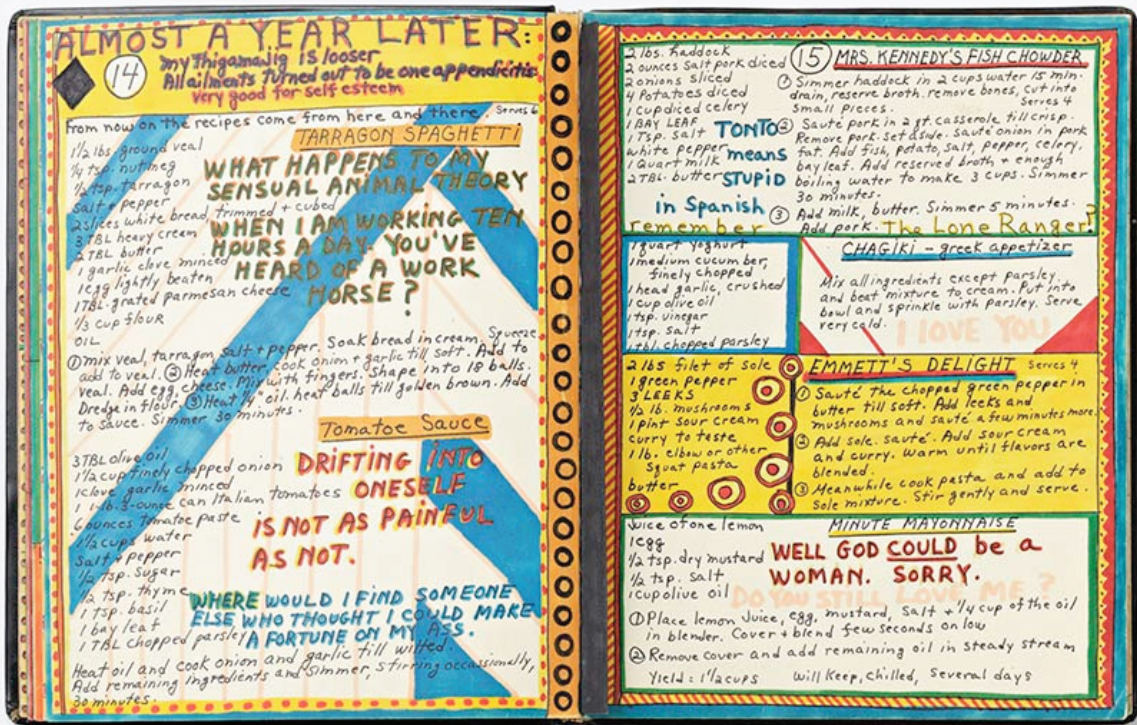 ALMOST A YEAR LATER:
14
my Thigamajig is looser
All ailments turned out to be one appendicitis
very good for self esteem
from now on the recipes come from here and there. Serves 6
TARRAGON SPAGHETTI
1½ lbs. ground veal
¼ tsp. nutmeg
½ tsp. tarragon
Salt + pepper
2 slices white bread, trimmed + cubed
3 TBL heavy cream
2 TBL butter
1 garlic clove minced
1 egg lightly beaten
1 TBL. grated parmesan cheese
⅓ cup flour
OIL
WHAT HAPPENS TO MY
SENSUAL ANIMAL THEORY
WHEN I AM WORKING TEN
HOURS A DAY. YOU'VE
HEARD OF A WORK
HORSE?
① mix veal, tarragon, salt + pepper. Soak bread in cream. Squeeze
add to veal. ② Heat butter, cook onion + garlic till soft. Add to
veal. Add egg, cheese. Mix with fingers. Shape into 18 balls.
Dredge in flour. ③ Heat ¼" oil. heat balls till golden brown. Add
to sauce. Simmer 30 minutes.
Tomatoe Sauce
3 TBL olive oil
1½ cup finely chopped onion
1 clove garlic minced
1 1-lb. 3-ounce can Italian tomatoes
6 ounces tomatoe paste
1½ cups water
Salt + pepper
½ tsp. sugar
½ tsp. thyme
1 tsp. basil
1 bay leaf
1 TBL chopped parsley
DRIFTING INTO
ONESELF
IS NOT AS PAINFUL
AS NOT.
WHERE WOULD I FIND SOMEONE
ELSE WHO THOUGHT I COULD MAKE
A FORTUNE ON MY ASS.
Heat oil and cook onion and garlic till wilted.
Add remaining ingredients and simmer, stirring occasionally,
30 minutes.
15 MRS. KENNEDY'S FISH CHOWDER
2 lbs. haddock
2 ounces Salt pork diced
2 onions sliced
4 potatoes diced
1 cup diced celery
1 BAY LEAF
1 Tsp. salt
white pepper
1 Quart milk
2 TBL. butter
TONTO
means
STUPID
in Spanish
remember
The Lone Ranger?
① Simmer haddock in 2 cups water 15 min.
drain, reserve broth. remove bones, cut into
small pieces. Serves 4
② Sauté pork in 2 qt. casserole till crisp.
Remove pork. set aside. Sauté onion in pork
fat. Add fish, potato, salt, pepper, celery,
bay leaf. Add reserved broth + enough
boiling water to make 3 cups. Simmer
30 minutes.
③ Add milk, butter. Simmer 5 minutes.
Add pork.
CHAGIKI - greek appetizer
1 quart yoghurt
1 medium cucumber,
finely chopped
1 head garlic, crushed
1 cup olive oil
1 tsp. vinegar
1 tsp. salt
1 tbl. chopped parsley
Mix all ingredients except parsley.
and beat mixture to cream. Put into
bowl and sprinkle with parsley. Serve
very cold.
I LOVE YOU
EMMETT'S DELIGHT Serves 4
2 lbs filet of sole
1 green pepper
3 LEEKS
½ lb. mushrooms
1 pint sour cream
curry to taste
1 lb. elbow or other
squat pasta
butter
① Sauté the chopped green pepper in
butter till soft. Add leeks and
mushrooms and sauté a few minutes more.
② Add sole. sauté. Add sour cream
and curry. Warm until flavors are
blended.
③ Meanwhile cook pasta and add to
Sole mixture. Stir gently and serve.
MINUTE MAYONNAISE
Juice of one lemon
1 egg
½ tsp. dry mustard
½ tsp. salt
1 cup olive oil
WELL GOD COULD be a
WOMAN. SORRY.
DO YOU STILL LOVE ME?
① Place lemon Juice, egg, mustard, Salt + ¼ cup of the oil
in blender. Cover + blend few seconds on low
② Remove cover and add remaining oil in steady stream
Yield: 1½ cups will keep, chilled, several days